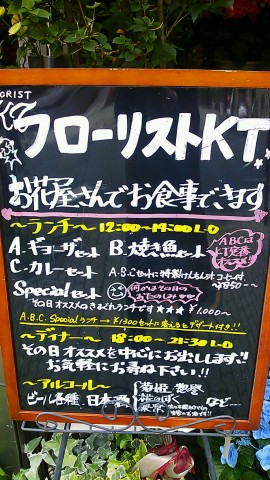 ORIST
フローリストKT
お花屋さんでお食事できます
～ランチ～ 12:00～14:00 L・O
A.ギョーザセット B.焼き魚セット
ABCは
KT定番
オススメ!!
C.カレーセット A・B・Cセットに特製けんちん汁、コーヒー付
¥850-～
Specialセット
何かはその日の
おたのしみ♡♡
その日オススメのきまぐれランチです★★★ ¥1,000～
A.B.C.Specialランチ → ¥1300セットに変えるとデザート付き!!
～ディナー～ 18:00～21:30 L・O
その日オススメを中心にお出しします!!
お気軽にお尋ね下さい!!
～アルコール～
ビール各種 日本酒
など…